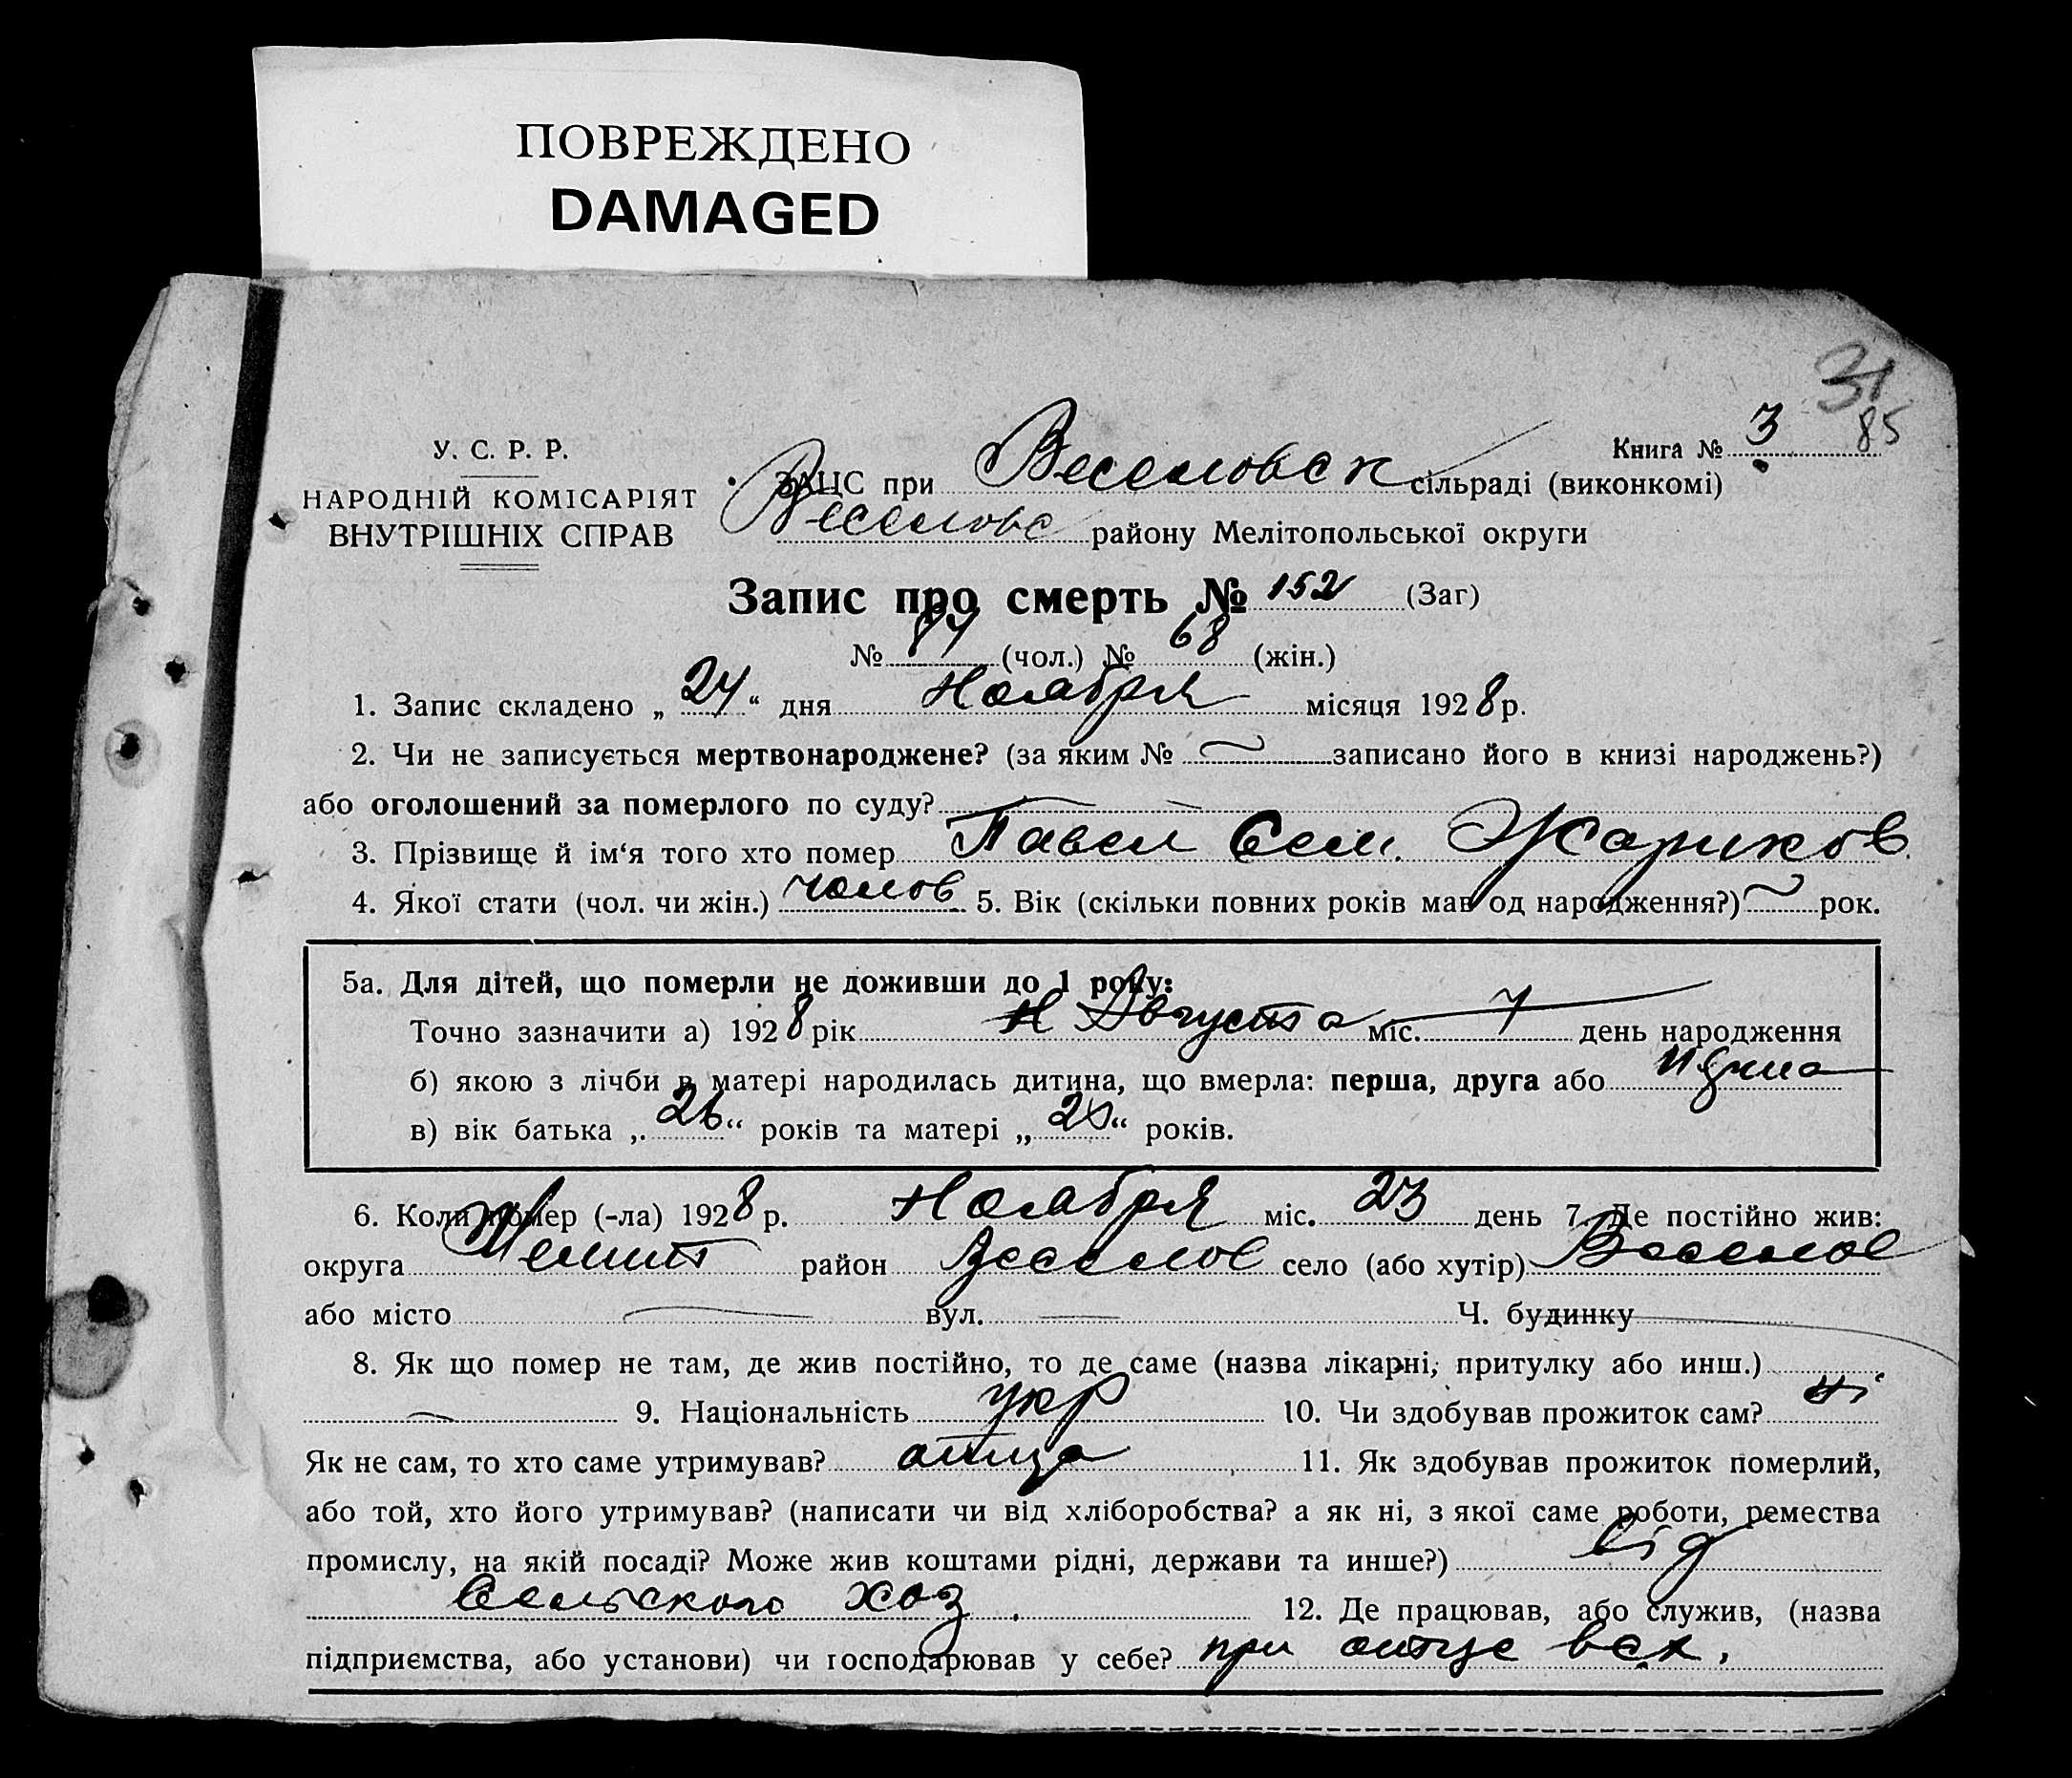 ПОВРЕЖДЕНО
DAMAGED
31
85
Книга № 3
У. С. Р. Р.
НАРОДНІЙ КОМІСАРІЯТ
ВНУТРІШНІХ СПРАВ
ЗАЦС при Веселовск сільраді (виконкомі)
Веселовс району Мелітопольської округи
Запис про смерть № 152 (Заг)
№ 84 (чол.) № 68 (жін.)
1. Запис складено „ 24 “ дня Ноября місяця 1928 р.
2. Чи не записується мертвонароджене? (за яким № записано його в книзі народжень?)
або оголошений за померлого по суду?
3. Прізвище й ім‘я того хто помер Павел Сем. Жариков
4. Якої стати (чол. чи жін.) чолов 5. Вік (скільки повних років мав од народження?) рок.
5а. Для дітей, що померли не доживши до 1 року:
Точно зазначити а) 1928 рік Августа міс. 7 день народження
б) якою з лічби в матері народилась дитина, що вмерла: перша, друга або
в) вік батька „ 26 “ років та матері „ “ років.
6. Коли помер (-ла) 1928 р. Ноября міс. 23 день 7. Де постійно жив:
округа Мелит район Веселов село (або хутір) Веселое
або місто вул. Ч. будинку
8. Як що помер не там, де жив постійно, то де саме (назва лікарні, притулку або инш.)
9. Національність укр 10. Чи здобував прожиток сам? ні
Як не сам, то хто саме утримував? отца 11. Як здобував прожиток померлий,
або той, хто його утримував? (написати чи від хліборобства? а як ні, з якої саме роботи, ремества
промислу, на якій посаді? Може жив коштами рідні, держави та инше?) від
сельского хоз. 12. Де працював, або служив, (назва
підприємства, або установи) чи господарював у себе? при отце